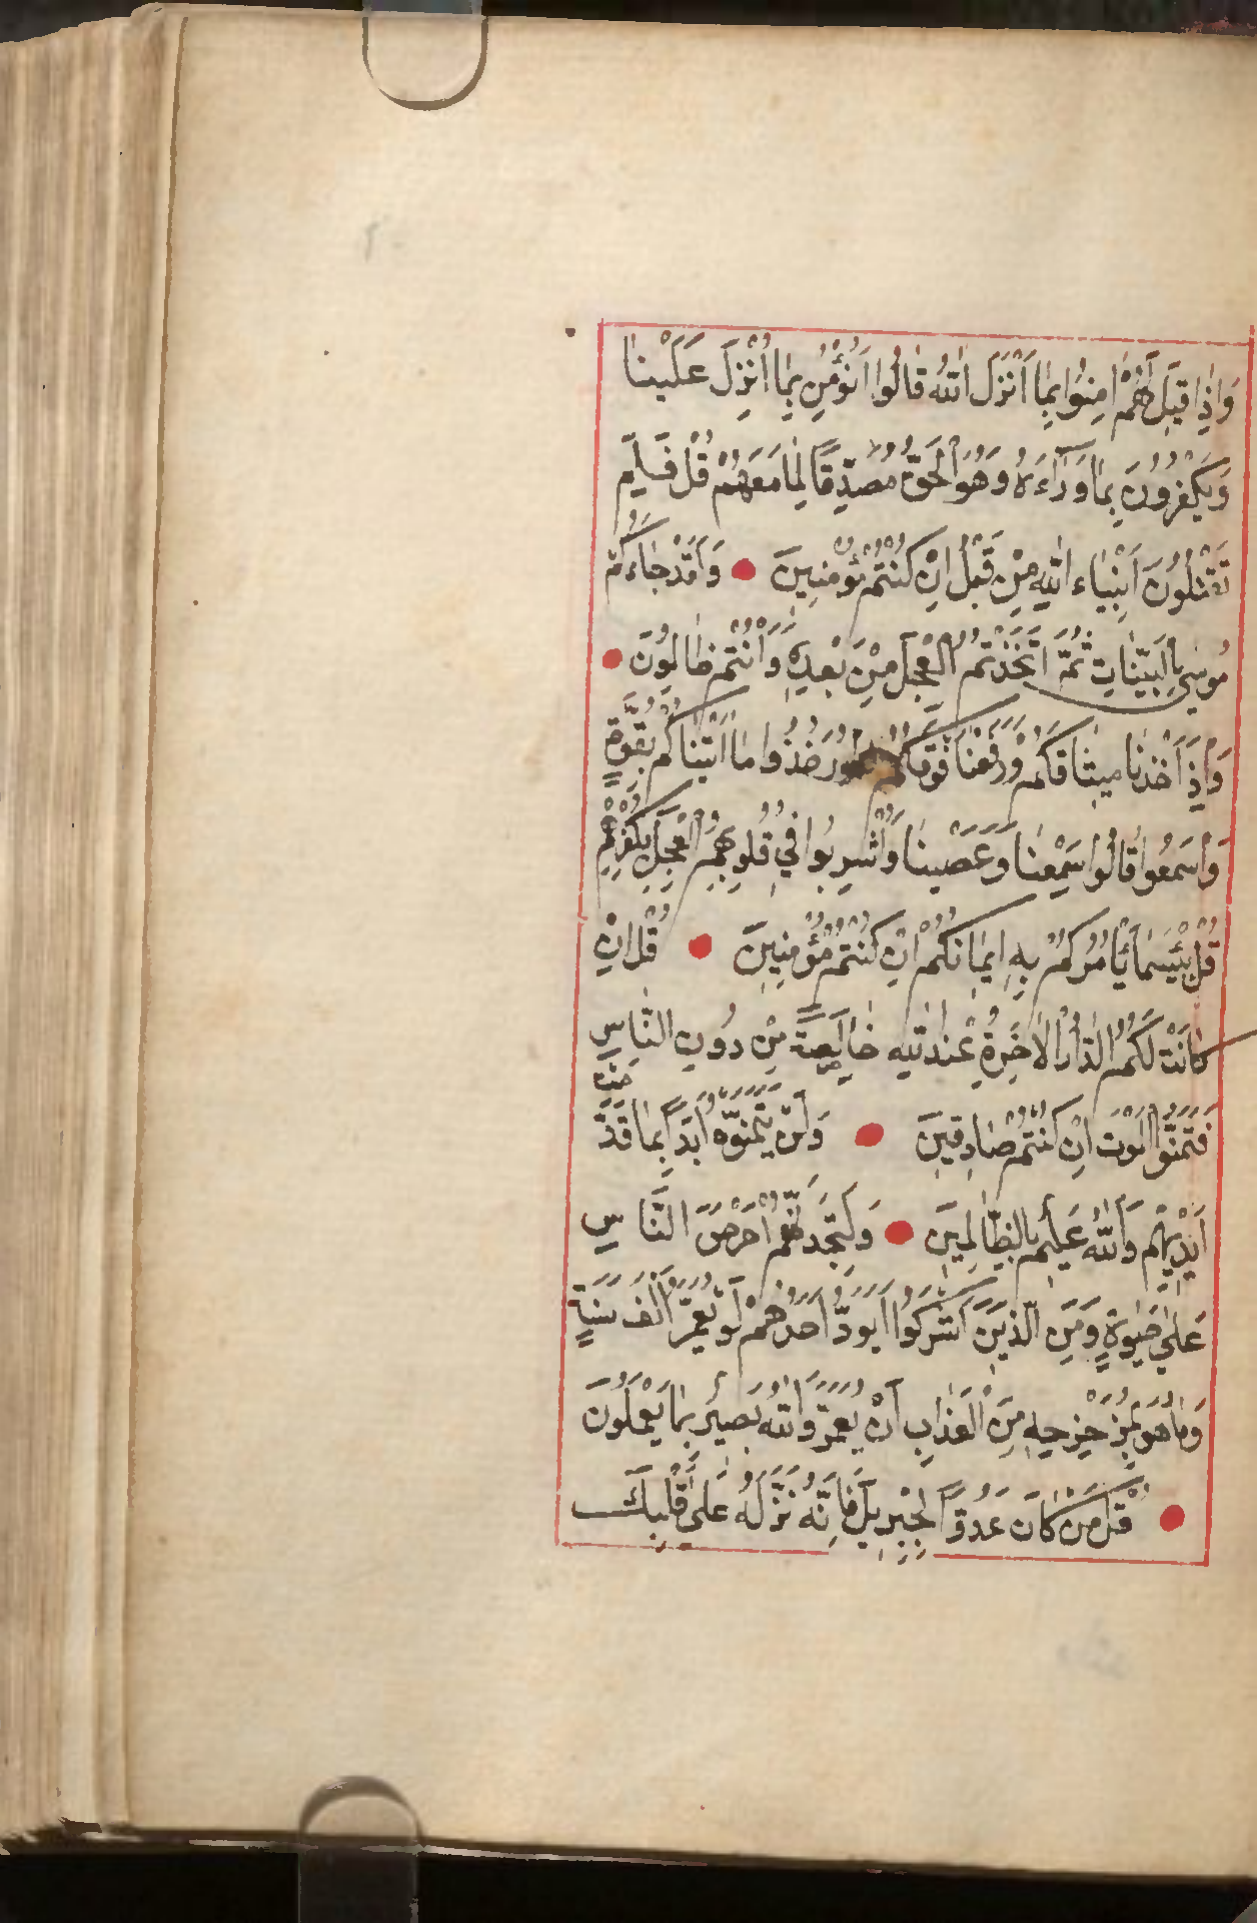 وَاِذَا قِيلَ لَهُمْ اٰمِنُوا بِمَا اَنْزَلَ اللّٰهُ قَالُوا نُؤْمِنُ بِمَا اُنْزِلَ عَلَيْنَا
وَيَكْفُرُونَ بِمَا وَرَٓاءَهُ وَهُوَ الْحَقُّ مُصَدِّقًا لِمَا مَعَهُمْ قُلْ فَلِمَ
تَقْتُلُونَ اَنْبِيَاءَ اللّٰهِ مِنْ قَبْلُ اِنْ كُنْتُمْ مُؤْمِنِينَ وَلَقَدْ جَاءَكُمْ
مُوسٰى بِالْبَيِّنَاتِ ثُمَّ اتَّخَذْتُمُ الْعِجْلَ مِنْ بَعْدِهِ وَاَنْتُمْ ظَالِمُونَ
وَاِذْ اَخَذْنَا مِيثَاقَكُمْ وَرَفَعْنَا فَوْقَكُمُ الطُّورَ خُذُوا مَا اٰتَيْنَاكُمْ بِقُوَّةٍ
وَاسْمَعُوا قَالُوا سَمِعْنَا وَعَصَيْنَا وَاُشْرِبُوا فِي قُلُوبِهِمُ الْعِجْلَ بِكُفْرِهِمْ
قُلْ بِئْسَمَا يَأْمُرُكُمْ بِهِ اِيمَانُكُمْ اِنْ كُنْتُمْ مُؤْمِنِينَ قُلْ اِنْ
كَانَتْ لَكُمُ الدَّارُ الْاٰخِرَةُ عِنْدَ اللّٰهِ خَالِصَةً مِنْ دُونِ النَّاسِ
فَتَمَنَّوُا الْمَوْتَ اِنْ كُنْتُمْ صَادِقِينَ وَلَنْ يَتَمَنَّوْهُ اَبَدًا بِمَا قَدَّمَتْ
اَيْدِيهِمْ وَاللّٰهُ عَلِيمٌ بِالظَّالِمِينَ وَلَتَجِدَنَّهُمْ اَحْرَصَ النَّاسِ
عَلٰى حَيٰوةٍ وَمِنَ الَّذِينَ اَشْرَكُوا يَوَدُّ اَحَدُهُمْ لَوْ يُعَمَّرُ اَلْفَ سَنَةٍ
وَمَا هُوَ بِمُزَحْزِحِهِ مِنَ الْعَذَابِ اَنْ يُعَمَّرَ وَاللّٰهُ بَصِيرٌ بِمَا يَعْمَلُونَ
قُلْ مَنْ كَانَ عَدُوًّا لِجِبْرِيلَ فَاِنَّهُ نَزَّلَهُ عَلٰى قَلْبِكَ